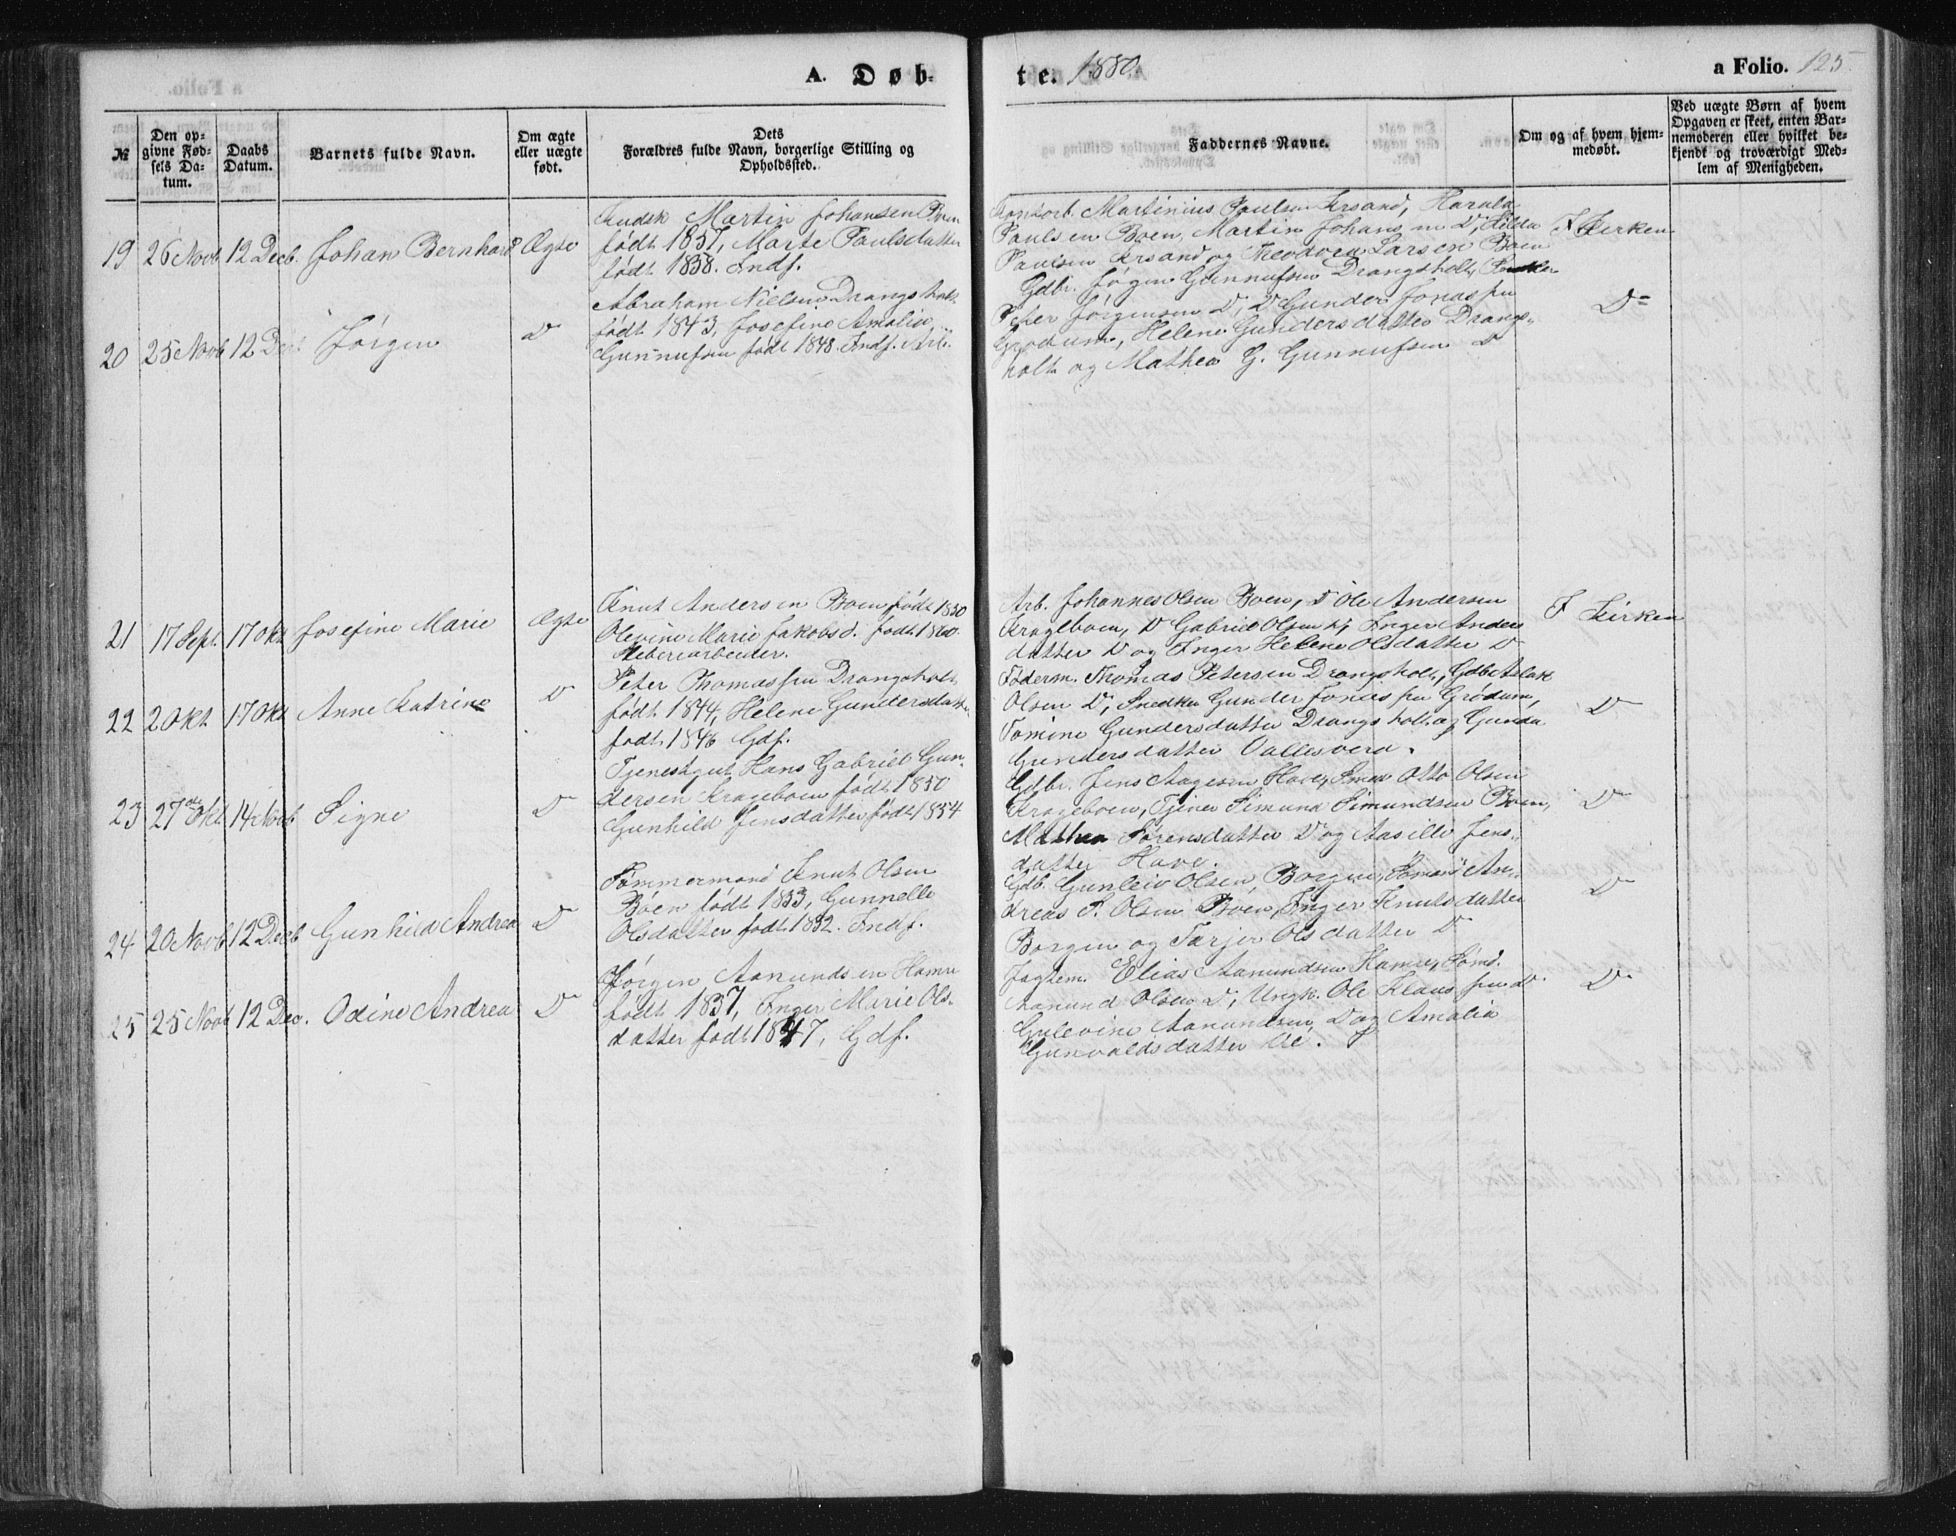 A. Døb-
te. 1880.
a Folio. 125
№
Den op-
givne Fød-
sels Da-
tum.
Daabs
Datum.
Barnets fulde Navn.
Om ægte
eller uægte
født.
Dets
Forældres fulde Navn, borgerlige Stilling og
Opholdssted.
Faddernes Navne.
Om og af hvem hjem-
medøbt.
Ved uægte Børn af hvem
Opgaven er skeet, enten Bar-
nemoderen eller hvilket be-
kjendt og troværdigt Med-
lem af Menigheden.
19 26 Novb 12 Decb. Johan Bernhard Ægte
Kudsk Martin Johansen Boen
født 1857, Marte Paulsdatter
født 1858. Indf.
Kontorb. Martinius Paulsen Krsand, Harald
Paulsen Boen, Martin Johansen D, Hilda
Paulsen Krsand og Theodora Larsen Boen
I Kirken
20 25 Novb 12 Dec Jørgen D
Abraham Nielsen Drangsholt
født 1843, Josefine Amalie
Gunnufsen født 1848. Indf. Arb.
Gdbr. Jørgen Gunnufsen Drangsholt,
Peter Jørgensen D, D Gunder Jonassen
Grødum, Helene Gundersdatter Drangs-
holt og Mathea G. Gunnufsen D
D
21 17 Sept. 17 Okt Josefine Marie Ægte
Knut Andersen Boen født 1850
Olevine Marie Jakobsd. født 1860.
arbeider.
Arb. Johannes Olsen Boen, D Ole Andersen
Krageboen, D Gabriel Olsen D, Inger Anders
datter D og Inger Helene Olsdatter D
I Kirken
22 2 Okt 17 Okt Anne Katrine D
Peter Thomassen Drangsholt
født 1844, Helene Gundersdatter
født 1846 Gdf.
Føderm. Thomas Petersen Drangsholt, Gdb Aslak
Olsen D, Snedker Gunder Jonassen Grødum,
Tomine Gundersdatter Drangsholt og Gunda
Gundersdatter Vallesverd.
D
23 27 Okt 14 Novb Signe D
Tjenestgut Hans Gabriel Gun-
dersen Krageboen født 1850
Gunhild Jensdatter født 1854
Gdbr. Jens Aagesen Have, Smed Otto Olsen
Krageboen, Tjener Simund Simundsen Boen,
Mathea Sørensdatter D og Aasille Jens-
datter Have.
D
24 20 Novb 12 Decb Gunhild Andrea D
Tømmermand Knut Olsen
Boen født 1833, Gunnelle
Olsdatter født 1832. Indf.
Gdb. Gunleiv Olsen Borgen, Sømand An-
dreas P. Olsen Boen, Inger Knutsdatter
Borgen og Tarjer Olsdatter D
D
25 25 Novb 12 Dec. Odine Andrea D
Jørgen Aanundsen Hamre
født 1837, Inger Marie Ols-
datter født 1847, Gdf.
Elias Aanundsen Hamre, Sømd.
Aanund Olsen D, Ungk. Ole Klaussen D
Gulevine Aanundsen, D og Amalia
Gunvaldsdatter
D